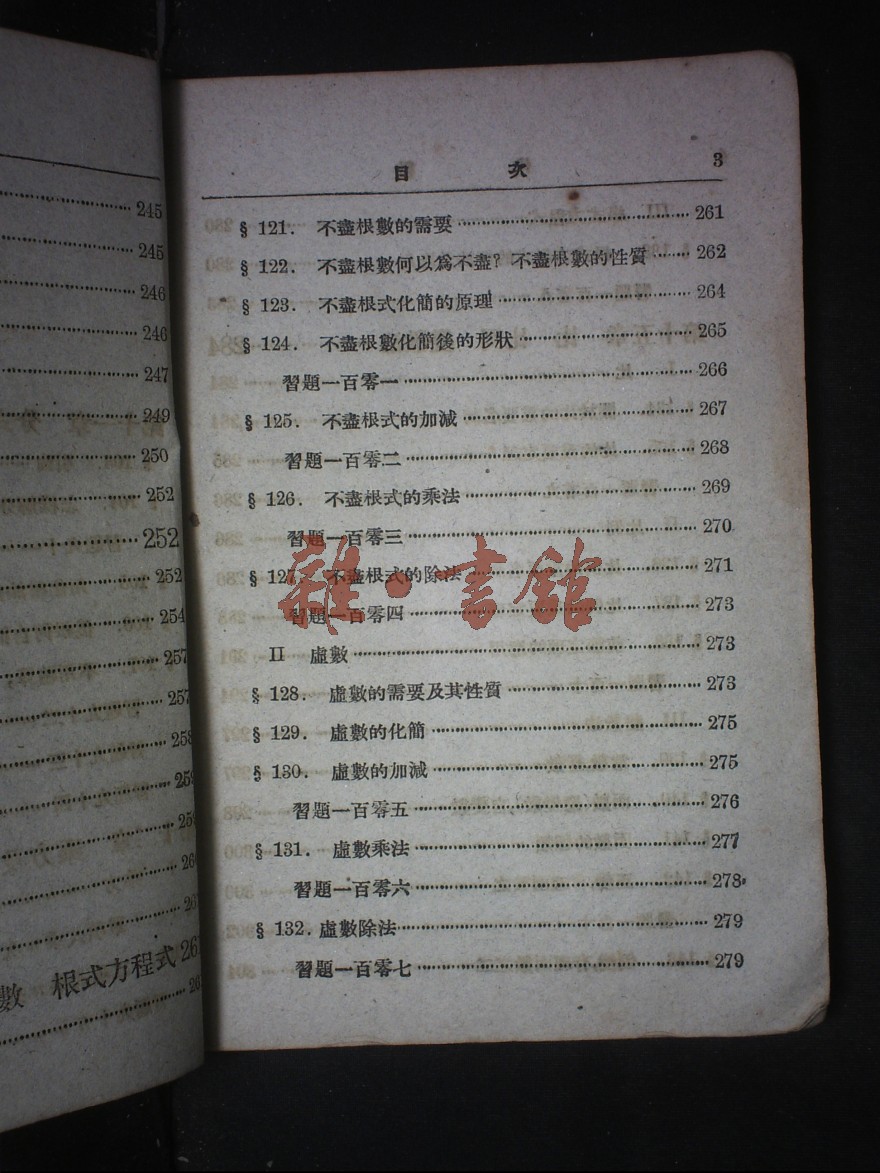 245
245
246
246
247
249
250
252
252
252
254
257
257
258
259
數 根式方程式
目 次 3
§ 121. 不盡根數的需要 261
§ 122. 不盡根數何以爲不盡? 不盡根數的性質 262
§ 123. 不盡根式化簡的原理 264
§ 124. 不盡根數化簡後的形狀 265
習題一百零一 266
§ 125. 不盡根式的加減 267
習題一百零二 268
§ 126. 不盡根式的乘法 269
習題一百零三 270
§ 127. 不盡根式的除法 271
習題一百零四 273
II 虛數 273
§ 128. 虛數的需要及其性質 273
§ 129. 虛數的化簡 275
§ 130. 虛數的加減 275
習題一百零五 276
§ 131. 虛數乘法 277
習題一百零六 278
§ 132. 虛數除法 279
習題一百零七 279
雜·書館